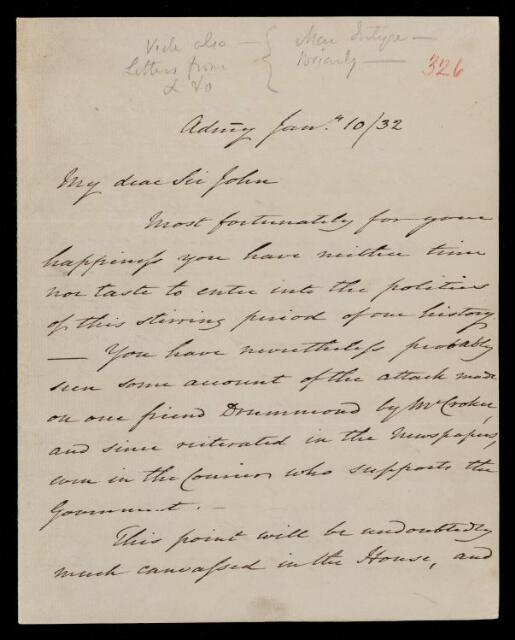 Vide also — { Mac Intyre —
Letters from { Brierly —
& to
326
Admty Jany. 10/32
My dear Sir John
Most fortunately for your
happiness you have neither time
nor taste to enter into the politics
of this stirring period of our history
— You have nevertheless probably
seen some account of the attack made
on our friend Drummond by Mr Croker,
and since reiterated in the Newspapers,
even in the Courier who supports the
Government. —
This point will be undoubtedly
much canvassed in the House, and